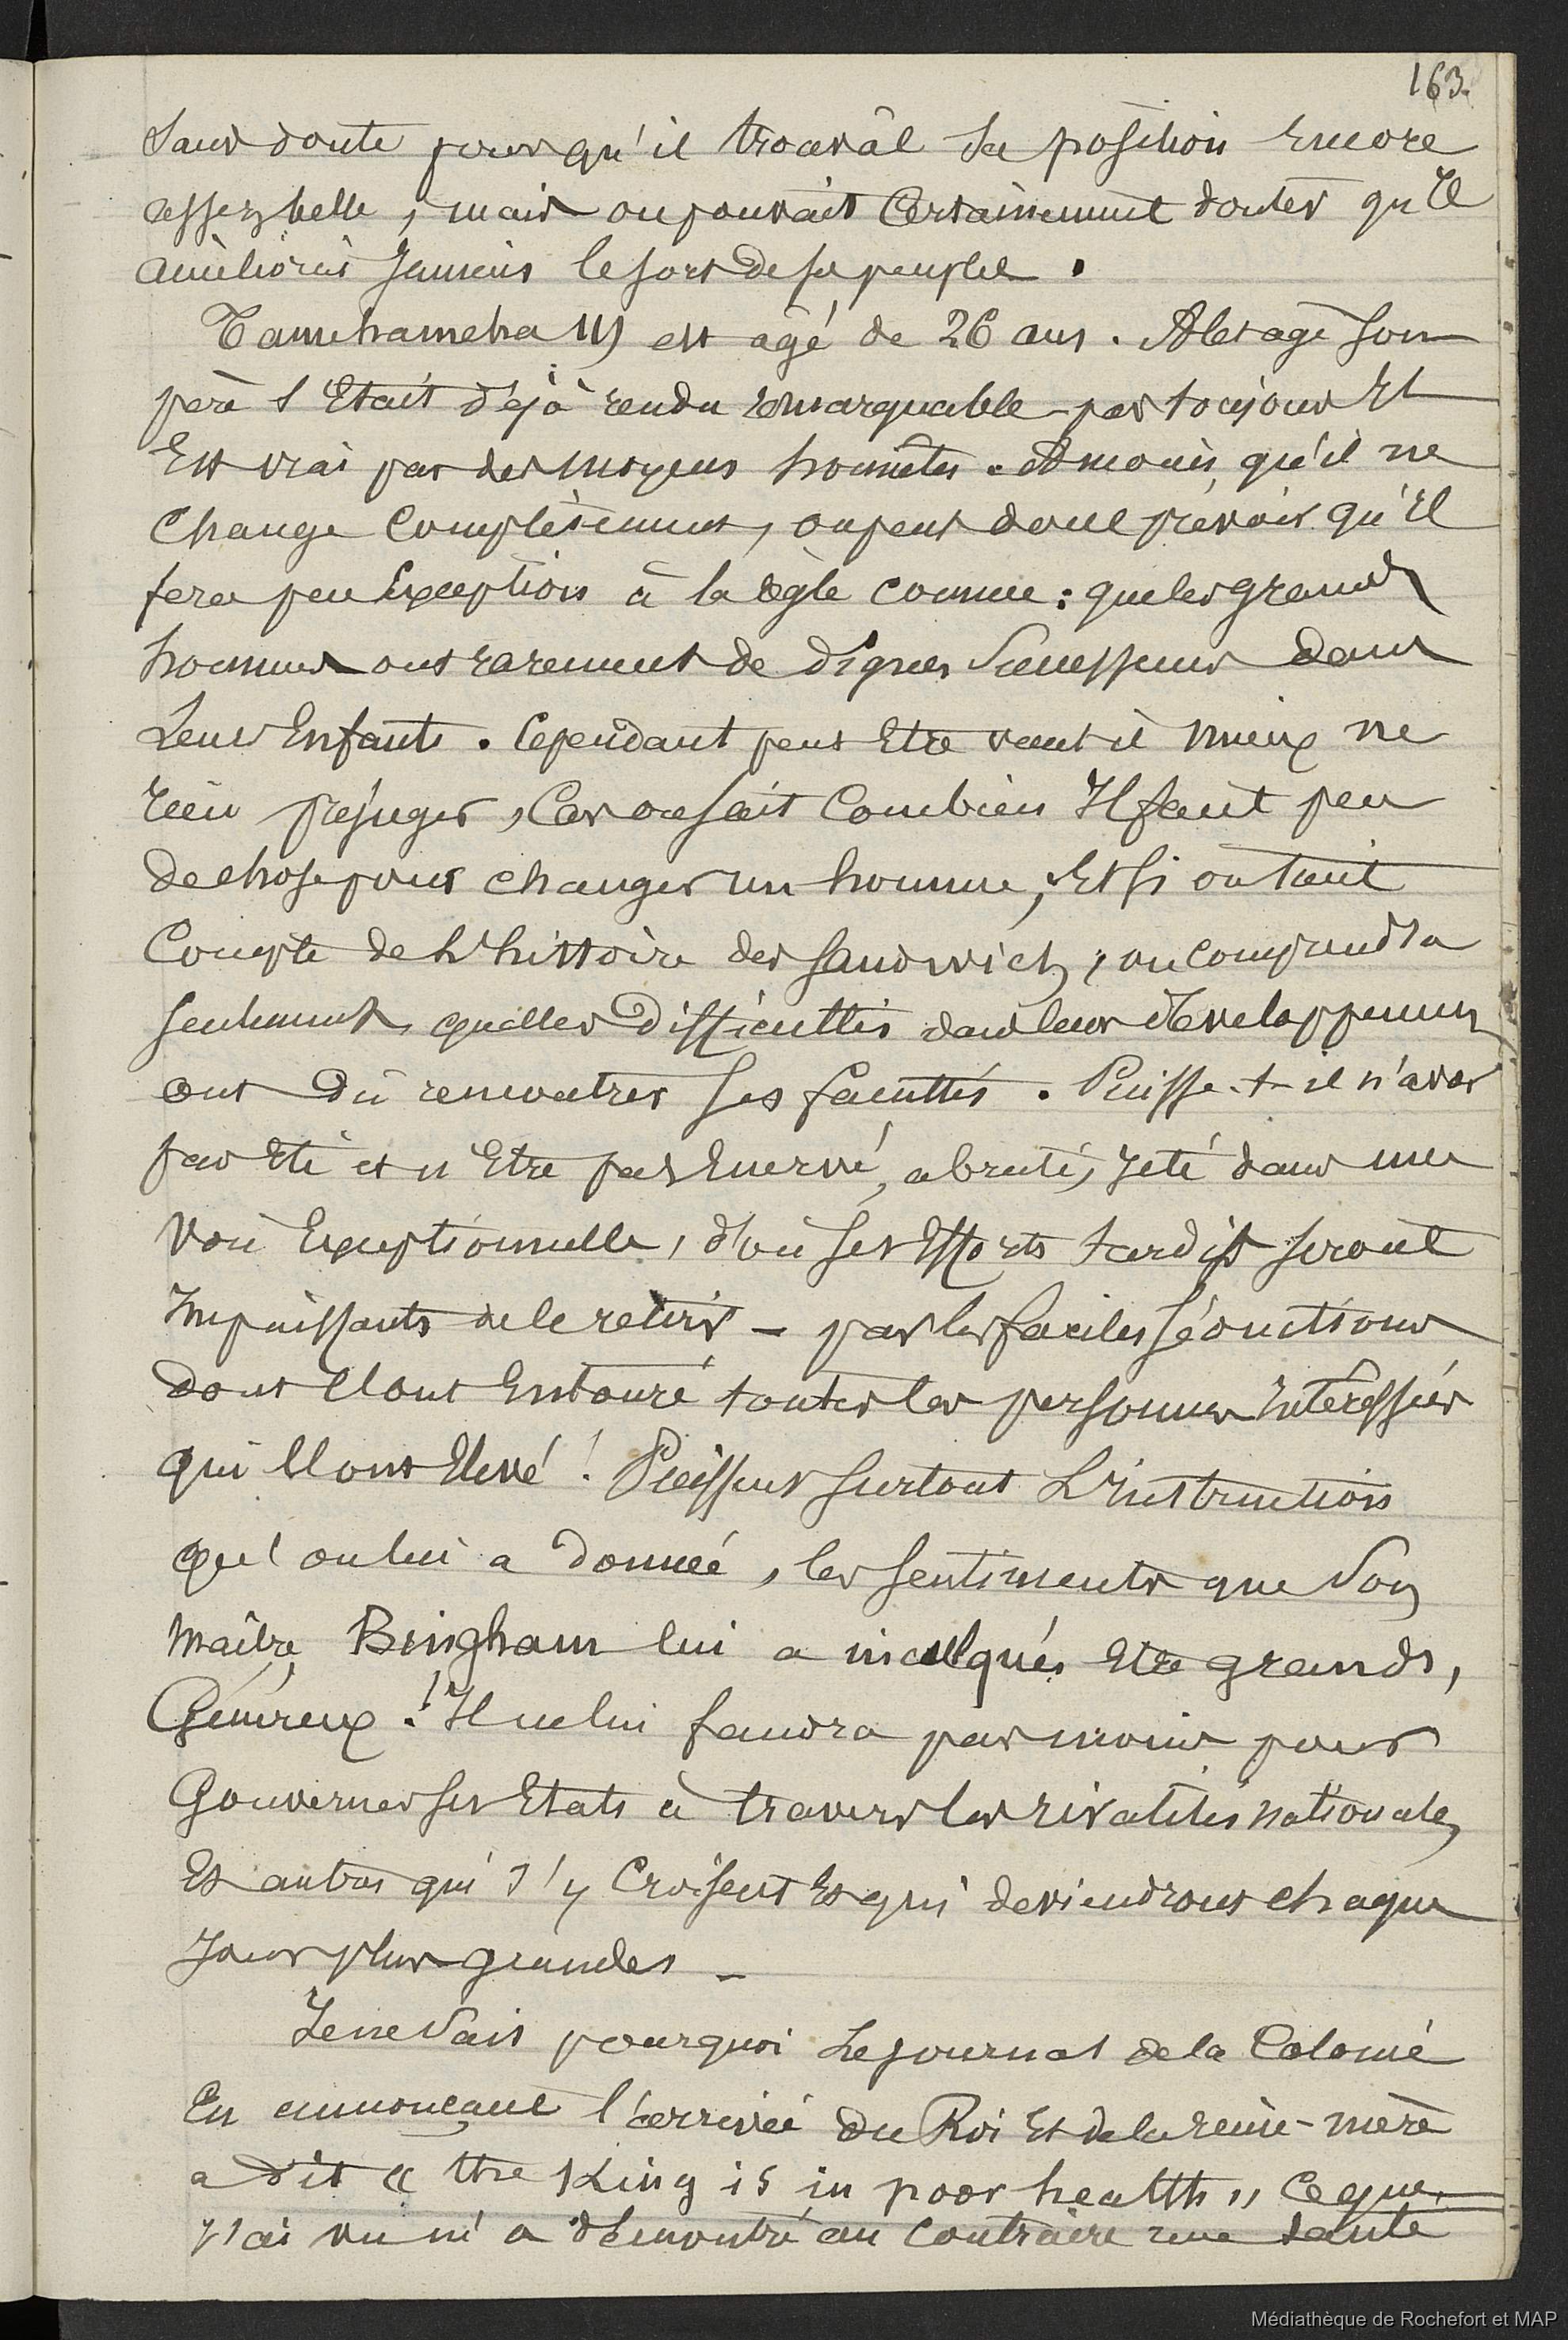 163.
sans doute pour qu'il trouvât sa position Encore
assez belle, mais on pouvait Certainement douter qu'Il
améliorât Jamais le sort de son peuple.
Tamehameha III est agé de 26 ans. A cet age son
père s'Etait déjà rendu remarquable pas toujours Il
Est vrai par des moyens honnêtes. A moins qu'il ne
Change Complètement, on peut donc prévoir qu'Il
fera peu Exception à la règle connue: que les grands
hommes ont rarement de dignes Successeurs dans
Leurs Enfants. Cependant peut Etre vaut il mieux ne
rien préjuger, Car on sait Combien Il faut peu
de chose pour changer un homme; Et si on tient
Compte de L'histoire des sandwich, on comprendra
seulement quelles Difficultés dans leur développement
ont Dû rencontrer ses facultés. Puisse-t-il n'avoir
pas Eté et n'Etre pas Enervé, abruti, Jeté dans une
voie Exceptionnelle, d'où ses Efforts tardifs seront
Impuissants de le retirer - par les faciles séductions
dont l'ont Entouré toutes les personnes Intéressées
qui l'ont Elevé! Puissent surtout L'instruction
qu'on lui a donnée, les sentiments que Son
maître Bingham lui a inculqués Etre grands,
Généreux! Il ne lui faudra pas moins pour
Gouverner ses Etats à travers les rivalités nationales
Et autres qui s'y Croisent Et qui deviendront chaque
Jour plus grandes -
Je ne Sais pourquoi Le journal de la Colonie
En annonçant l'arrivée du Roi Et de la reine-mère
a dit « the King is in poor health » Ce que
j'ai vu m'a démontré au Contraire une santé
Médiathèque de Rochefort et MAP